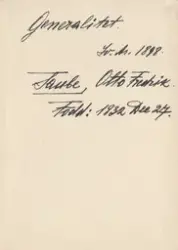 Generalitet.
Tr. Nr. 1898.
Taube, Otto Fredrik.
Född: 1832 Dec 27.